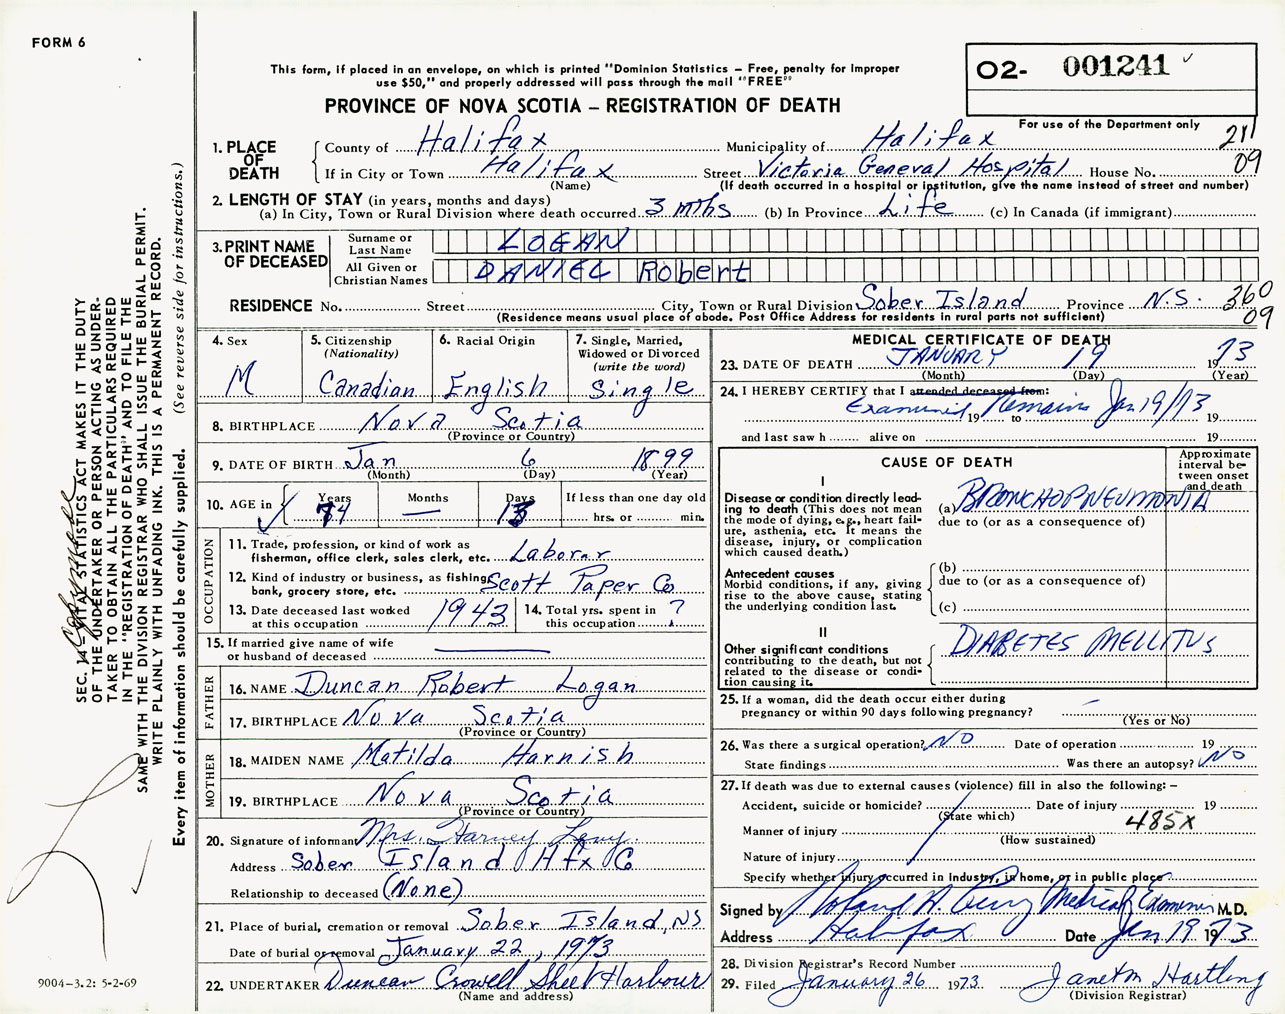 FORM 6
This form, if placed in an envelope, on which is printed "Dominion Statistics – Free, penalty for Improper
use $50," and properly addressed will pass through the mail "FREE"
O2- 001241 ✓
For use of the Department only
PROVINCE OF NOVA SCOTIA – REGISTRATION OF DEATH
211
09
1. PLACE OF DEATH
County of Halifax Municipality of Halifax
If in City or Town Halifax Street Victoria General Hospital House No.
(Name) (If death occurred in a hospital or institution, give the name instead of street and number)
2. LENGTH OF STAY (in years, months and days)
(a) In City, Town or Rural Division where death occurred 3 mths (b) In Province Life (c) In Canada (if immigrant)
3. PRINT NAME OF DECEASED
Surname or Last Name LOGAN
All Given or Christian Names DANIEL Robert
RESIDENCE No. Street City, Town or Rural Division Sober Island Province N.S. 360
09
(Residence means usual place of abode. Post Office Address for residents in rural parts not sufficient)
4. Sex M
5. Citizenship (Nationality) Canadian
6. Racial Origin English
7. Single, Married, Widowed or Divorced (write the word) Single
8. BIRTHPLACE Nova Scotia
(Province or Country)
9. DATE OF BIRTH Jan 6 1899
(Month) (Day) (Year)
10. AGE in ✓ Years 74 Months — Days 13 If less than one day old
hrs. or min.
OCCUPATION
11. Trade, profession, or kind of work as
fisherman, office clerk, sales clerk, etc. Laborer
12. Kind of industry or business, as fishing,
bank, grocery store, etc. Scott Paper Co
13. Date deceased last worked
at this occupation 1943
14. Total yrs. spent in
this occupation ?
15. If married give name of wife
or husband of deceased
FATHER
16. NAME Duncan Robert Logan
17. BIRTHPLACE Nova Scotia
(Province or Country)
MOTHER
18. MAIDEN NAME Matilda Harnish
19. BIRTHPLACE Nova Scotia
(Province or Country)
20. Signature of informant Mrs. Harvey Levy
Address Sober Island Hfx Co
Relationship to deceased (None)
21. Place of burial, cremation or removal Sober Island, NS
Date of burial or removal January 22, 1973
22. UNDERTAKER Duncan Crowell Sheet Harbour
(Name and address)
MEDICAL CERTIFICATE OF DEATH
23. DATE OF DEATH JANUARY 19 1973
(Month) (Day) (Year)
24. I HEREBY CERTIFY that I attended deceased from:
Examined 19 Remains to Jan 19/73 19
and last saw h alive on 19
CAUSE OF DEATH
Approximate interval between onset and death
I
Disease or condition directly leading to death (This does not
mean the mode of dying, e.g., heart failure, asthenia, etc. It means the
disease, injury, or complication
which caused death.)
(a) BRONCHOPNEUMONIA
due to (or as a consequence of)
Antecedent causes
Morbid conditions, if any, giving
rise to the above cause, stating
the underlying condition last.
(b)
due to (or as a consequence of)
(c)
II
Other significant conditions
contributing to the death, but not
related to the disease or condition causing it.
DIABETES MELLITUS
25. If a woman, did the death occur either during
pregnancy or within 90 days following pregnancy? –
(Yes or No)
26. Was there a surgical operation? NO Date of operation 19
State findings Was there an autopsy? NO
27. If death was due to external causes (violence) fill in also the following: –
Accident, suicide or homicide? Date of injury 19
(State which)
485X
Manner of injury
(How sustained)
Nature of injury
Specify whether injury occurred in Industry, in home, or in public place
Signed by Roland A. Perry Medical Examiner M.D.
Address Halifax Date Jan 19 1973
28. Division Registrar's Record Number
29. Filed January 26 1973 Janet M Hartling
(Division Registrar)
SEC. 14 – VITAL STATISTICS ACT MAKES IT THE DUTY
OF THE UNDERTAKER OR PERSON ACTING AS UNDER-
TAKER TO OBTAIN ALL THE PARTICULARS REQUIRED
IN THE "REGISTRATION OF DEATH" AND TO FILE THE
SAME WITH THE DIVISION REGISTRAR WHO SHALL ISSUE THE BURIAL PERMIT.
WRITE PLAINLY WITH UNFADING INK. THIS IS A PERMANENT RECORD.
Every item of information should be carefully supplied. (See reverse side for instructions.)
9004-3.2: 5-2-69